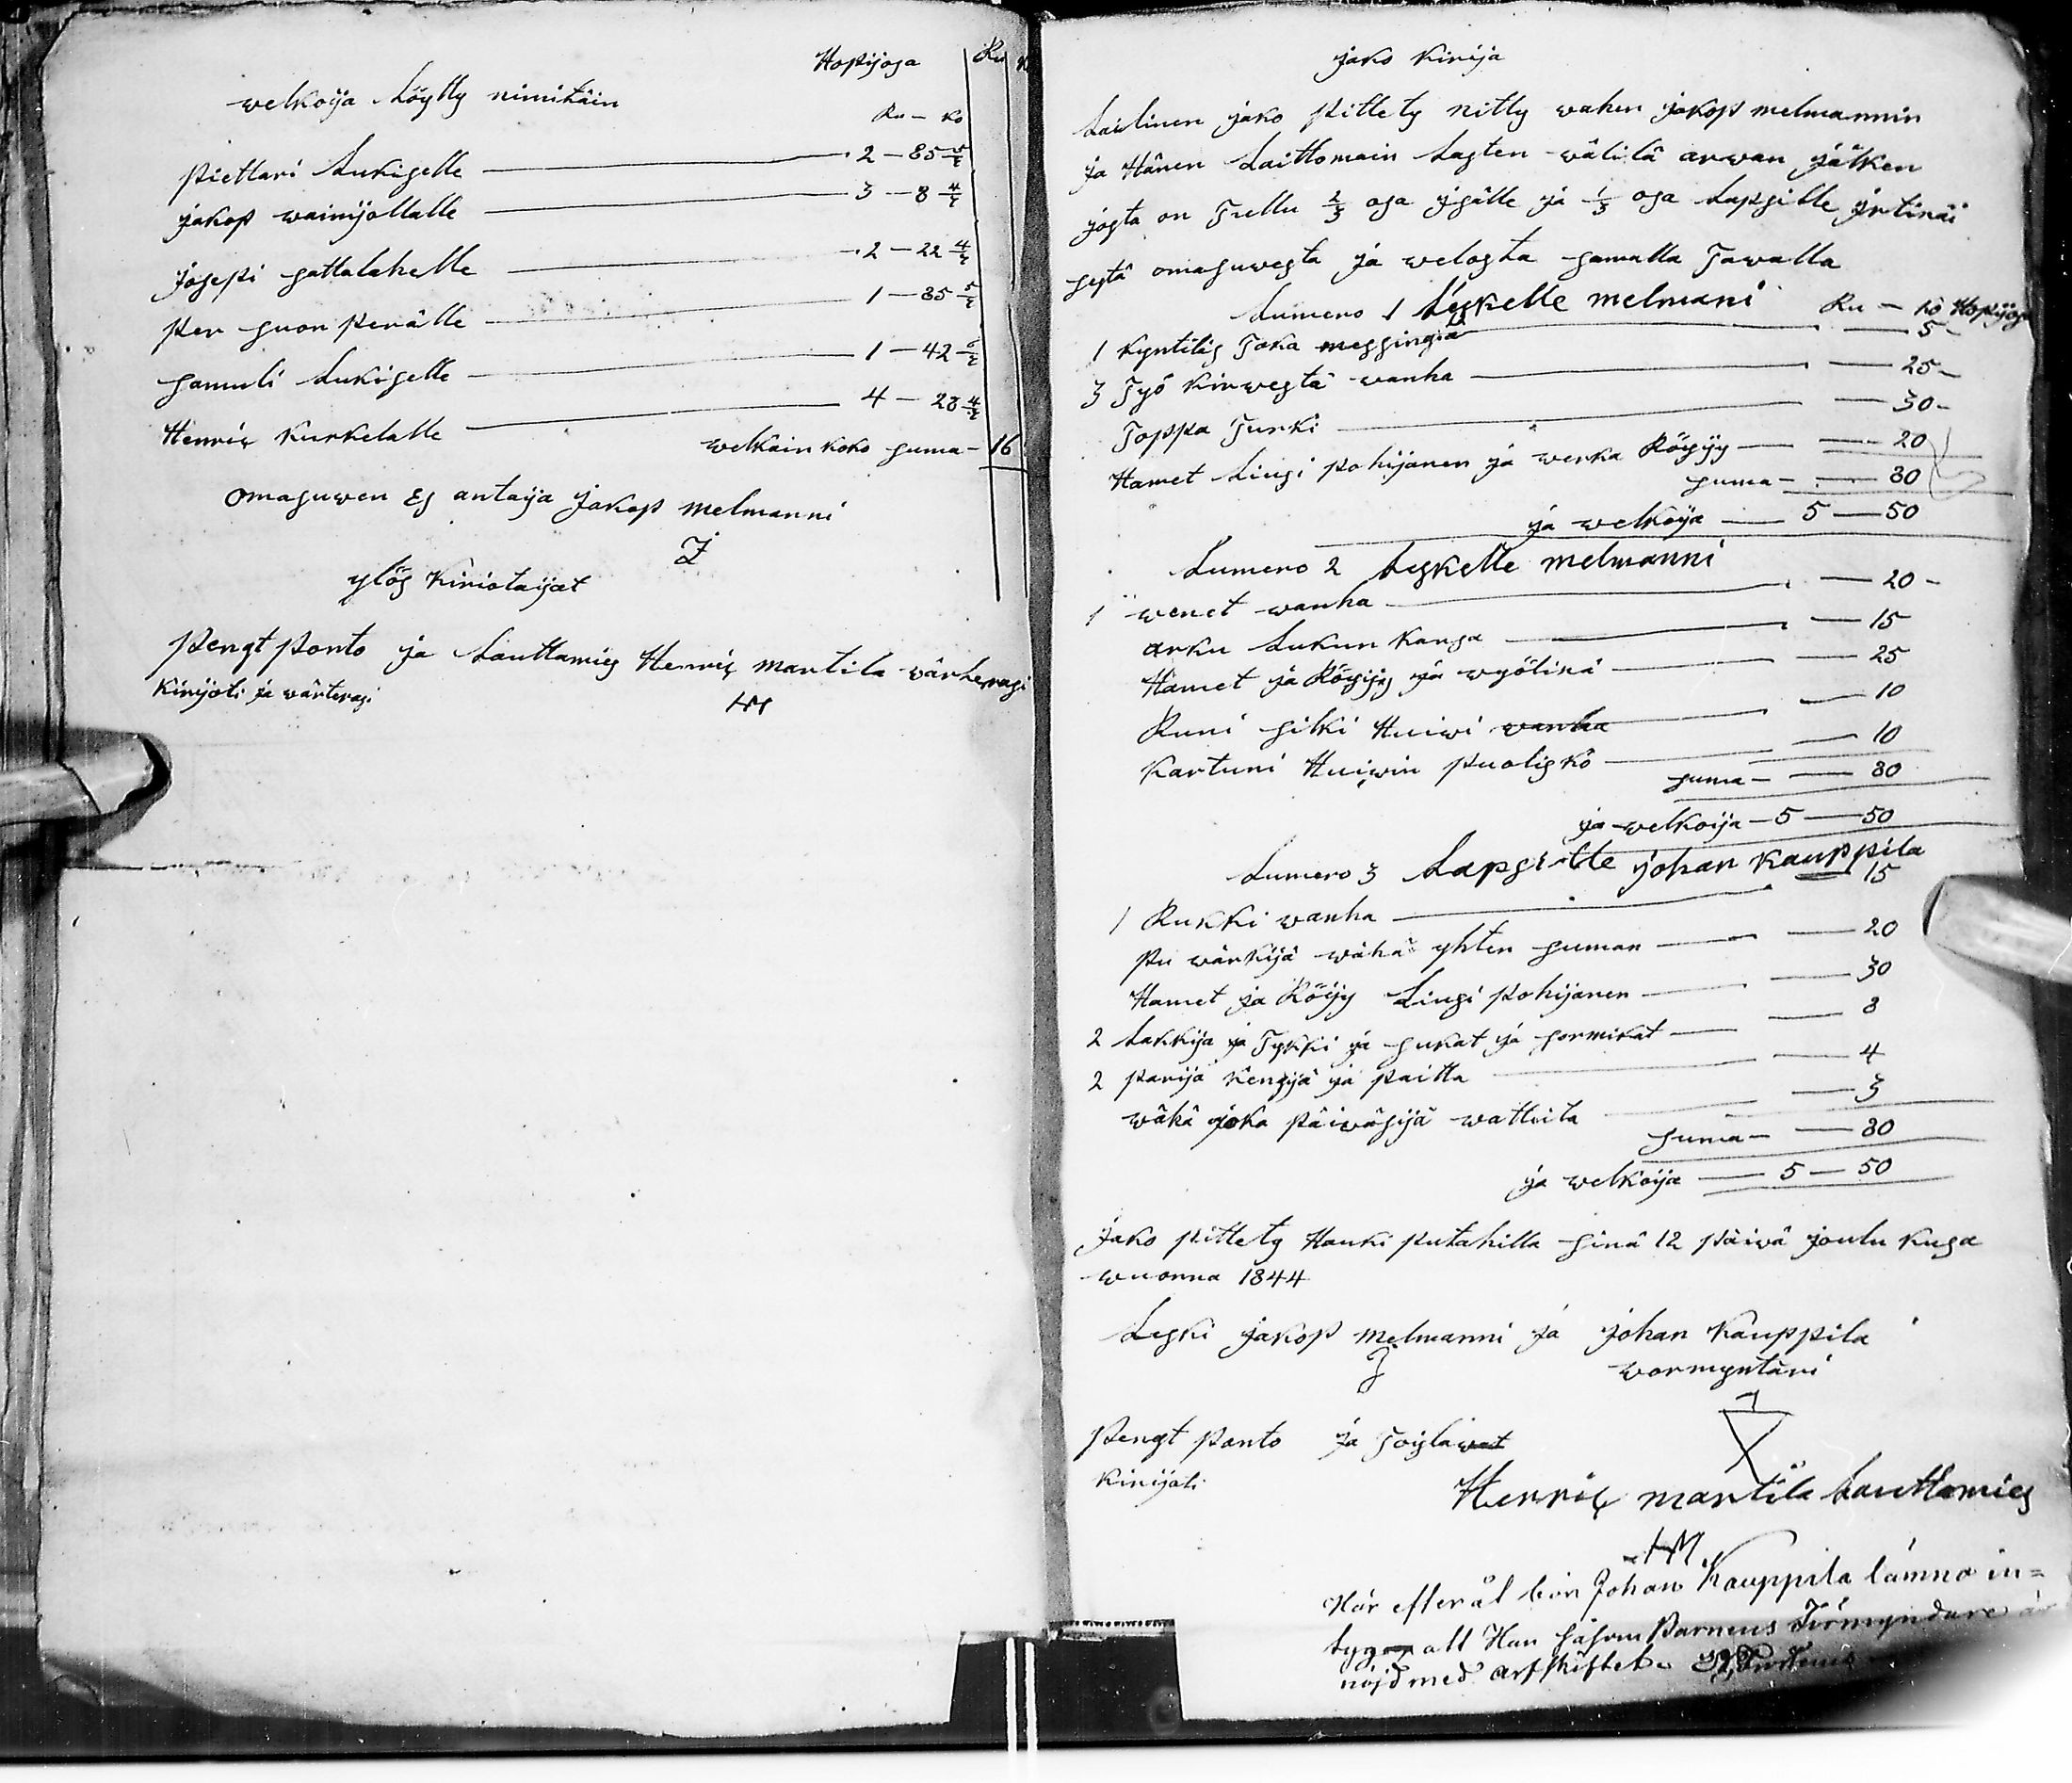 Hopijosa Ru
welkoija Löytty nimitäin
Ru — ko
Piettari Lukiselle 2 — 85 5/7
jakop wainijollalle 3 — 8 4/7
Josepi sattalahelle 2 — 22 4/7
Per suon perälle 1 — 85 5/7
samuli Lukiselle 1 — 42 6/7
Henrix Kurkelalle 4 — 28 4/7
welkain koko suma — 16
omasuwen es antaija jakop melmanni
ylös kiriotaijat
Pengt Ponto ja Lauttamies Henrix martila wärherasi
Kirijoti ja wärterasi
HM
jako kirija
Lailinen jako pittety nitty wahen jakop melmannin
ja Hänen Laittomain Lasten wälilä arwan jälken
josta on Trellu 2/3 osa jsälle ja 1/3 osa Lapsille jrtinäi
sestä omasuwesta ja welosta samalla Tawalla
Lumero 1 Leskelle melmani Ru — ko Hopijosa
1 kyntilis Joka messingiä — 5 —
3 Työ kirwestä wanha — 25 —
Toppa Turki — 30 —
Hamet Lingi pohijanen ja werka Röyijy — 20
suma — 80
ja welkoija — 5 — 50
Lumero 2 Leskelle melmanni
1 wenet wanha — 20 —
arku Lukun kansa — 15
Hamet ja Röyijy ja wyölinä — 25
Runi silki Huiwi wanha — 10
Kartuni Huiwin puolisko — 10
suma — 80
ja welkoija — 5 — 50
Lumero 3 Lapsille johan kauppila
1 Rukki wanha — 15
Pu wärkijä wähä yhten suman — 20
Hamet ja Röijy Lingi pohijanen — 30
2 Lakkija ja Tykki ja sukat ja sormikat — 8
2 parija kenzijä ja paitta — 4
wäkä joka päiwäsijä watteita — 3
suma — 80
ja welkoija — 5 — 50
Jako pittety Hauki putahilla sinä 12 päiwä joulu kusa
wuonna 1844
Leski jakop melmanni ja johan kauppila
wormyntäri
Pengt Ponto ja Toistawat
Kirijoti
Henrix martila Lauttamies
HM
Här efteråt bör Johan Kauppila lämna in=
tyg att Han såsom Barnens Förmyndare är
nöjd med arfskiftet.